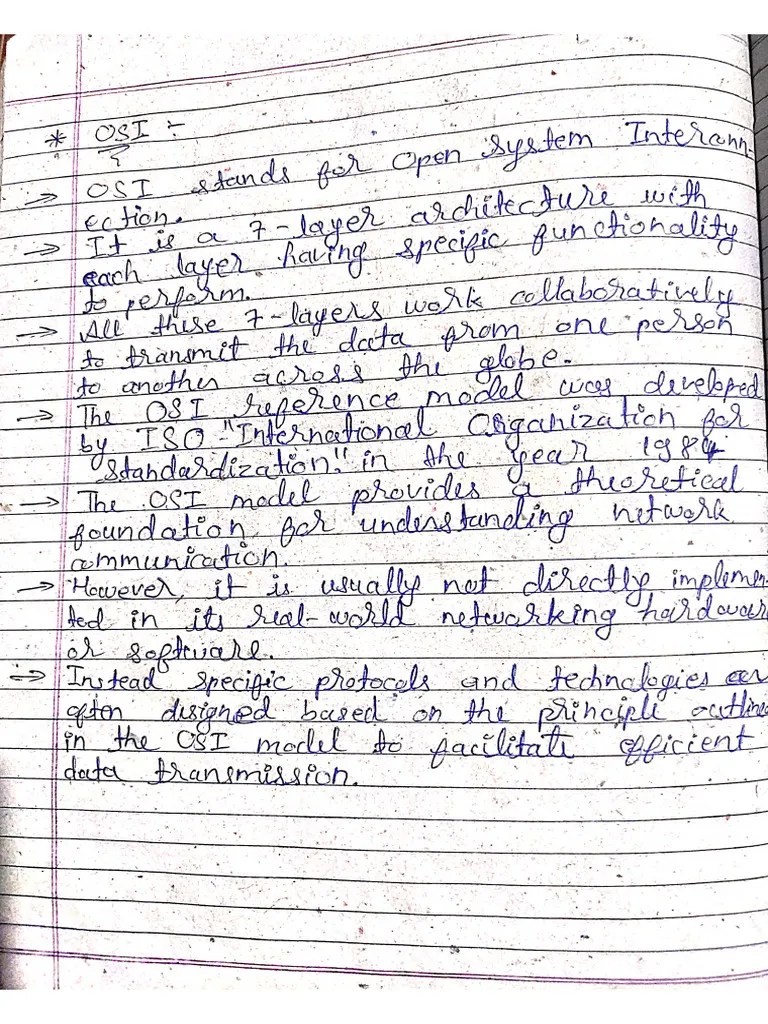 * OSI :-
→ OSI stands for Open System Interconn-
ection.
→ It is a 7-layer architecture with
each layer having specific functionality
to perform.
→ All these 7-layers work collaboratively
to transmit the data from one person
to another across the globe.
→ The OSI reference model was developed
by ISO-"International Organization for
Standardization" in the year 1984
→ The OSI model provides a theoretical
foundation for understanding network
communication.
→ However, it is usually not directly implemen-
ted in its real-world networking hardware
or software.
→ Instead specific protocols and technologies
often designed based on the principle outline
in the OSI model to facilitate efficient
data transmission.